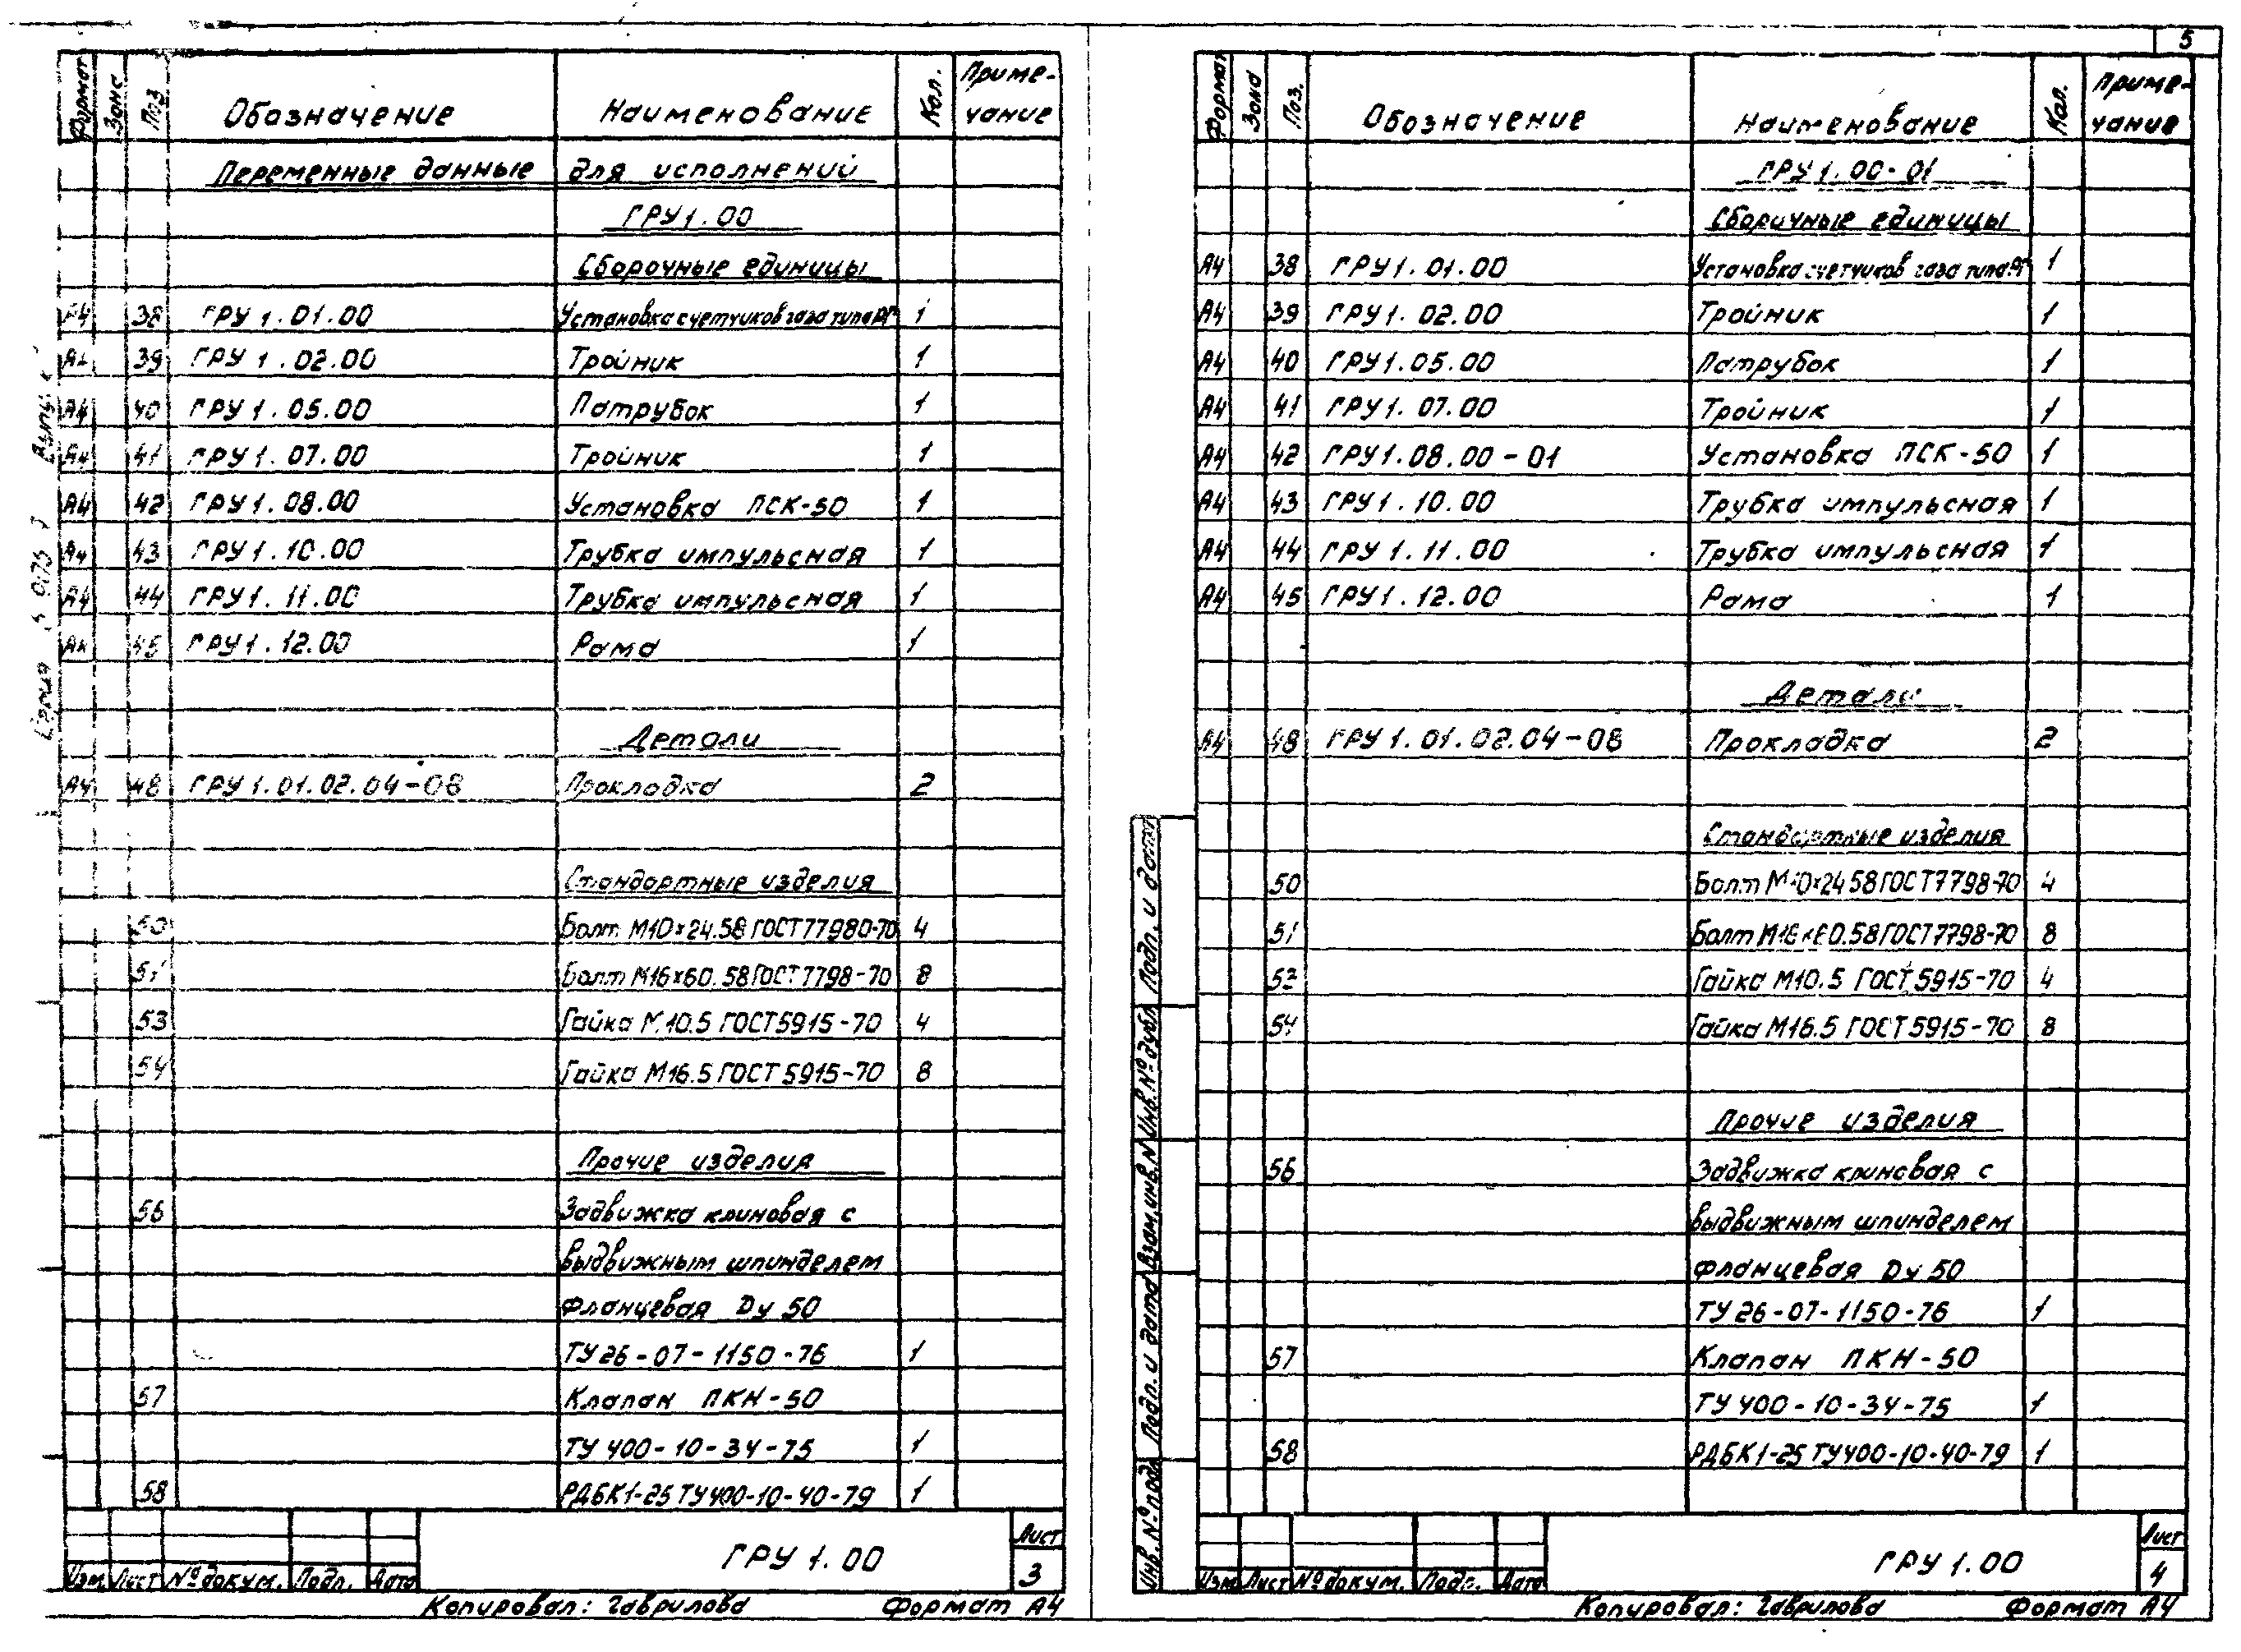 Формат Зона Поз Обозначение Наименование Кол. Приме-
чание
Переменные данные для исполнений
ГРУ 1.00
Сборочные единицы
А4 38 ГРУ 1.01.00 Установка счетчиков газа типа РГ 1
А4 39 ГРУ 1.02.00 Тройник 1
А4 40 ГРУ 1.05.00 Патрубок 1
А4 41 ГРУ 1.07.00 Тройник 1
А4 42 ГРУ 1.08.00 Установка ПСК-50 1
А4 43 ГРУ 1.10.00 Трубка импульсная 1
А4 44 ГРУ 1.11.00 Трубка импульсная 1
А4 45 ГРУ 1.12.00 Рама 1
Детали
А4 48 ГРУ 1.01.02.04-08 Прокладка 2
Стандартные изделия
50 Болт М10×24.58 ГОСТ 77980-70 4
51 Болт М16×60.58 ГОСТ 7798-70 8
53 Гайка М10.5 ГОСТ 5915-70 4
54 Гайка М16.5 ГОСТ 5915-70 8
Прочие изделия
56 Задвижка клиновая с
выдвижным шпинделем
фланцевая Dу 50
ТУ 26-07-1150-76 1
57 Клапан ПКН-50
ТУ 400-10-34-75 1
58 РДБК1-25 ТУ400-10-40-79 1
Изм Лист № докум. Подп. Дата
ГРУ 1.00
Лист
3
Копировал: Гаврилова Формат А4
Серия Выпуск
5
Формат Зона Поз. Обозначение Наименование Кол. Приме-
чание
ГРУ 1.00-01
Сборочные единицы
А4 38 ГРУ 1.01.00 Установка счетчиков газа типа РГ 1
А4 39 ГРУ 1.02.00 Тройник 1
А4 40 ГРУ 1.05.00 Патрубок 1
А4 41 ГРУ 1.07.00 Тройник 1
А4 42 ГРУ 1.08.00-01 Установка ПСК-50 1
А4 43 ГРУ 1.10.00 Трубка импульсная 1
А4 44 ГРУ 1.11.00 Трубка импульсная 1
А4 45 ГРУ 1.12.00 Рама 1
Детали
А4 48 ГРУ 1.01.02.04-08 Прокладка 2
Стандартные изделия
50 Болт М10×24 58 ГОСТ 7798-70 4
51 Болт М16×60.58 ГОСТ 7798-70 8
53 Гайка М10.5 ГОСТ 5915-70 4
54 Гайка М16.5 ГОСТ 5915-70 8
Прочие изделия
56 Задвижка клиновая с
выдвижным шпинделем
фланцевая Dу 50
ТУ 26-07-1150-76 1
57 Клапан ПКН-50
ТУ 400-10-34-75 1
58 РДБК1-25 ТУ400-10-40-79 1
Изм Лист № докум. Подп. Дата
ГРУ 1.00
Лист
4
Копировал: Гаврилова Формат А4
Инв. № подл Подп. и дата Взам. инв. № Инв. № дубл Подп. и дата